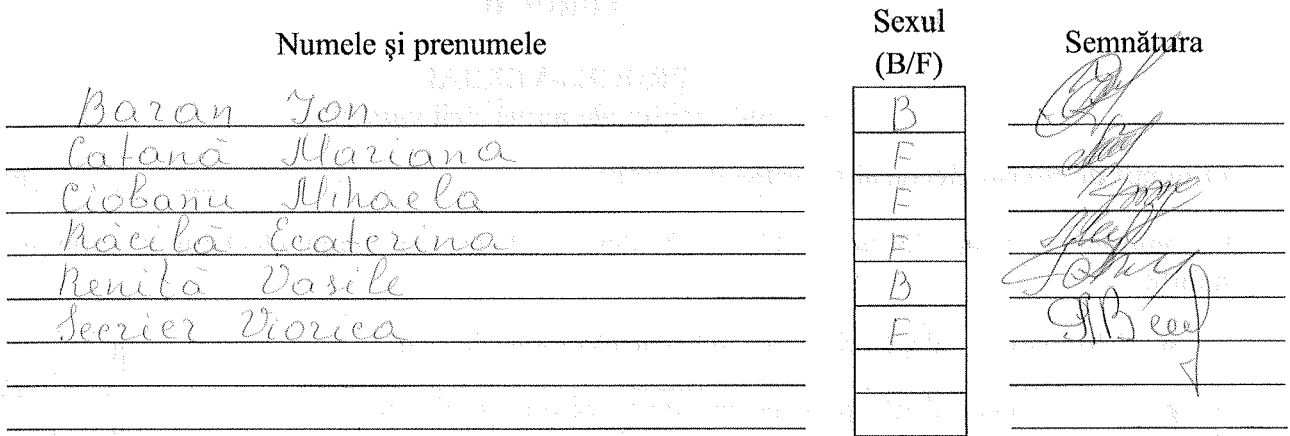 Numele și prenumele Sexul (B/F) Semnătura
Baran Ion B
Catană Mariana F
Ciobanu Mihaela F
Ecaterina F
Vasile B
Secrier Viorica F